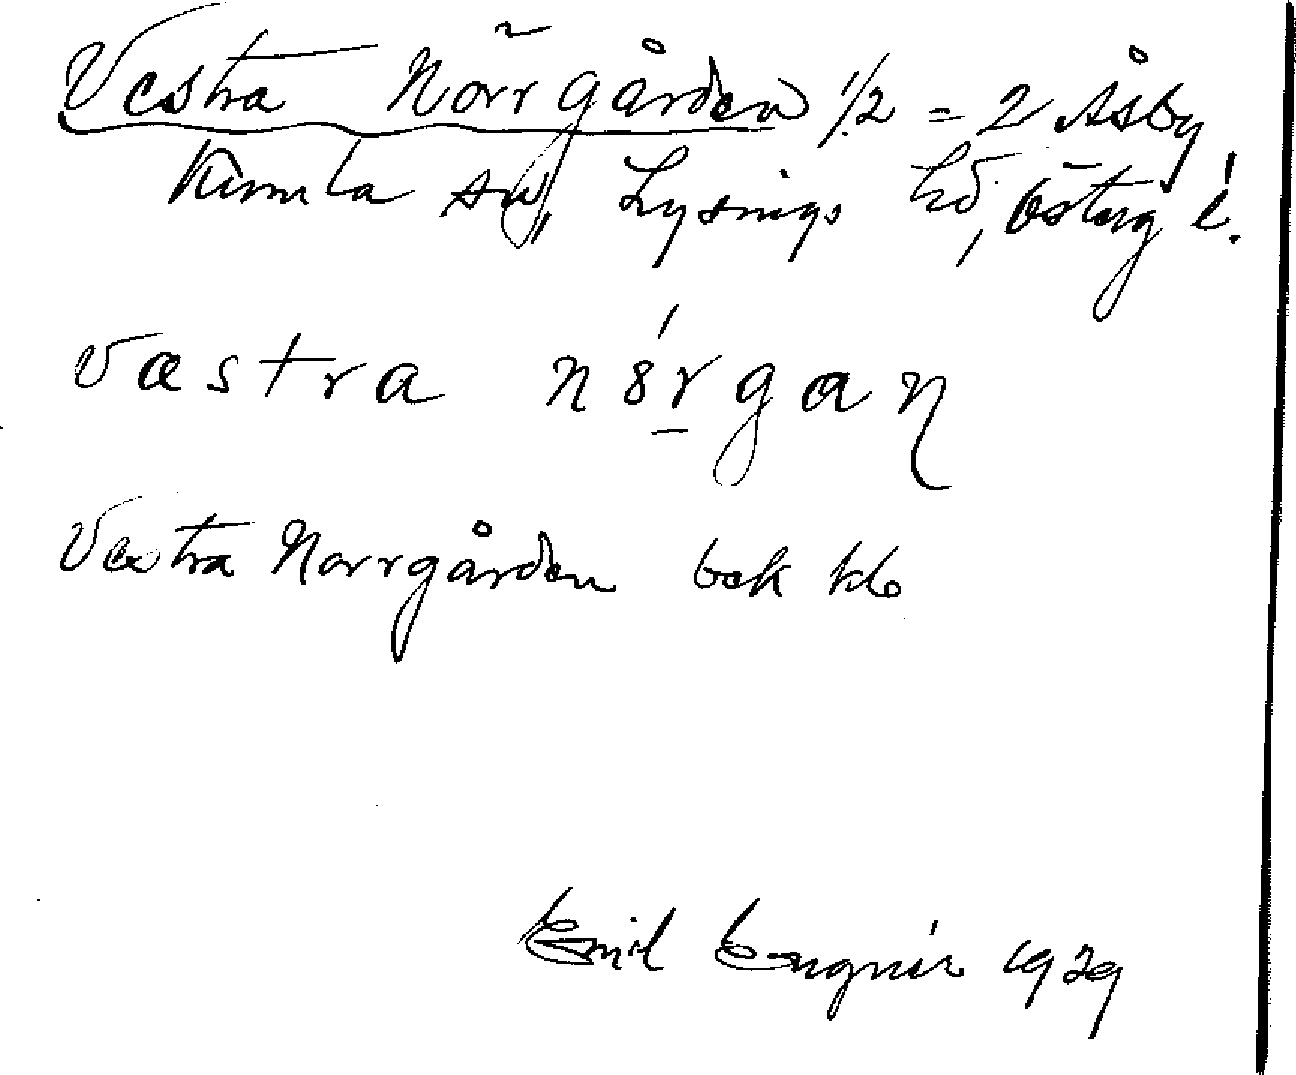 Vestra Nörrgården 1/2 = 2 Åsby
Kumla sn, Lysings hd, Österg l.
væstra nórgaɳ
Vestra Norrgården bok kb
Emil Engnér 1929